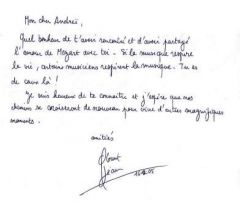 Mon cher Andreï,
Quel bonheur de t'avoir rencontré et d'avoir partagé
l'amour de Mozart avec toi - Si la musique respire
la vie, certains musiciens respirent la musique. Tu es
de ceux là !
Je suis heureux de te connaître et j'espère que nos
chemins se croiseront de nouveau pour vivre d'autres magnifiques
moments.
amitiés
Jean